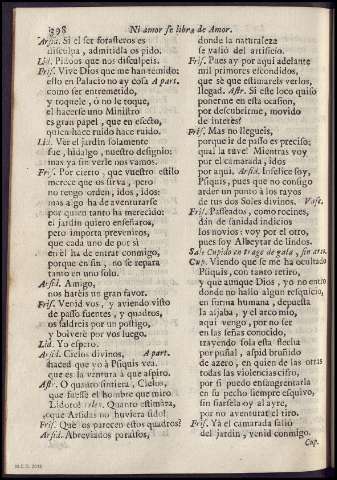 398 Ni amor se libra de Amor.
Arsid. Si el ser forasteros es
disculpa, admitidla os pido.
Lid. Pidoos que nos disculpeis.
Fris. Vive Dios que me han temido:
esto en Palacio no ay cosa A part.
como ser entremetido,
y toquele, ò no le toque,
el hacerse uno Ministro
es gran papel, que en efecto,
quien hace ruido hace ruido.
Lid. Ver el jardin solamente
fue, hidalgo, nuestro designio;
mas ya sin verle nos vamos.
Fris. Por cierto, que vuestro estilo
merece que os sirva, pero
no tengo orden, idos, idos:
mas algo ha de aventurarse
por quien tanto ha merecido:
el jardin quiero enseñaros,
pero importa preveniros,
que cada uno de por sì
en èl ha de entrar conmigo,
porque en fin, no se repara
tanto en uno solo.
Arsid. Amigo,
nos hareis un gran favor.
Fris. Venid vos, y aviendo visto
de passo fuentes, y quadros,
os saldreis por un postigo,
y bolverè por vos luego.
Lid. Yo espero.
Arsid. Cielos divinos, A part.
haced que yo à Psiquis vea,
que es la ventura à que aspiro.
Astr. O quanto sintiera, Cielos,
que fuesse el hombre que miro
Lidoro! Quanto estimàra,
que Arsidas no huviera sido!
Fris. Què os parecen estos quadros?
Arsid. Abreviados paraisos,
donde la naturaleza
se valiò del artificio.
Fris. Pues ay por aqui adelante
mil primores escondidos,
que sè que estimareis verlos,
llegad. Astr. Si este loco quiso
ponerme en esta ocasion,
por descubrirme, movido
de interès!
Fris. Mas no llegueis,
porque ir de passo es preciso;
qual la tuve! Mientras voy
por el camarada, idos
por aqui. Arsid. Infelice soy,
Psiquis, pues que no consigo
arder un punto à los rayos
de tus dos Soles divinos. Vase.
Fris. Passeados, como rocines,
dàn de sanidad indicios
los novios: voy por el otro,
pues soy Albeytar de lindos.
Sale Cupido en trage de gala, sin arco.
Cup. Viendo que se me ha ocultado
Psiquis, con tanto retiro,
y que aunque Dios, yo no entro
donde no hallo algun resquicio,
en forma humana, depuesta
la aljaba, y el arco mio,
aqui vengo, por no ser
en las señas conocido,
trayendo sola esta flecha
por puñal, aspid bruñido
de azero, en quien de las otras
todas las violencias cifro,
por si puedo ensangrentarla
en su pecho siempre esquivo,
sin fiarsela oy al ayre,
por no aventurar el tiro.
Fris. Yà el camarada saliò
del jardin, venid conmigo.
Cup.